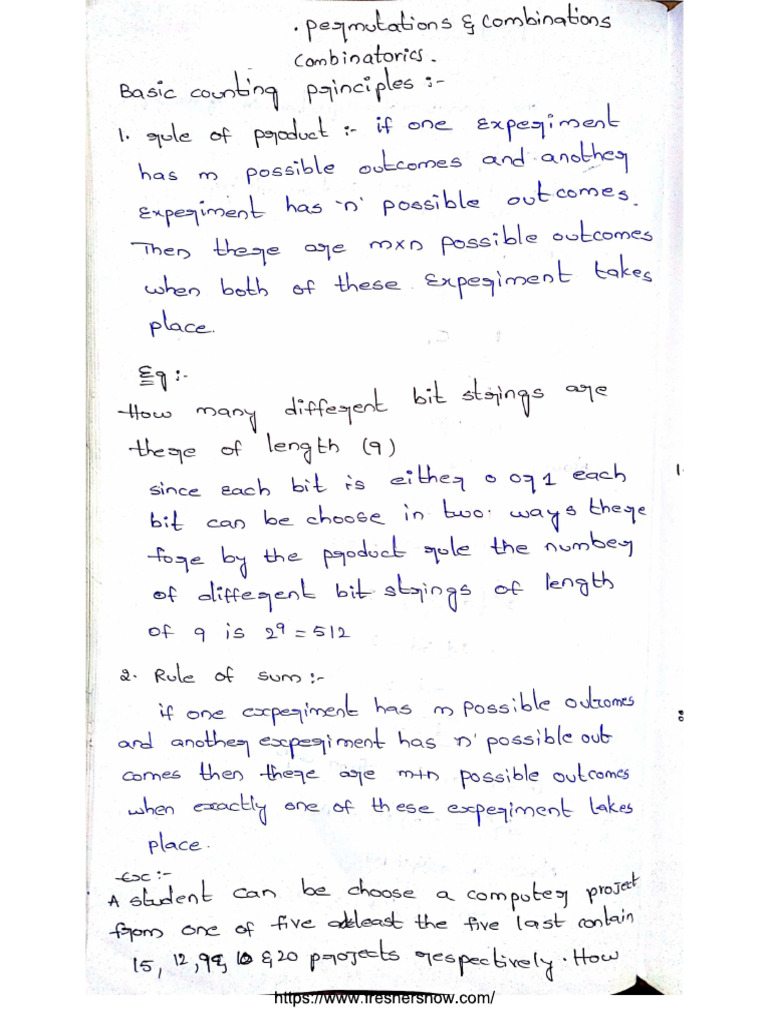 . Permutations & Combinations
Combinatorics.
Basic counting principles :-
1. rule of product :- if one Experiment
has m possible outcomes and another
Experiment has 'n' possible outcomes.
Then there are m×n possible outcomes
when both of these Experiment takes
place.
Eg :-
How many different bit strings are
there of length (9)
since each bit is either 0 or 1 each
bit can be choose in two ways there
fore by the product rule the number
of different bit strings of length
of 9 is 2⁹ = 512
2. Rule of sum :-
if one experiment has m possible outcomes
and another experiment has n' possible out
comes then there are m+n possible outcomes
when exactly one of these experiment takes
place.
Ex :-
A student can be choose a computer project
from one of five the five last contain
15, 12, 10 & 20 projects respectively. How
https://www.freshersnow.com/